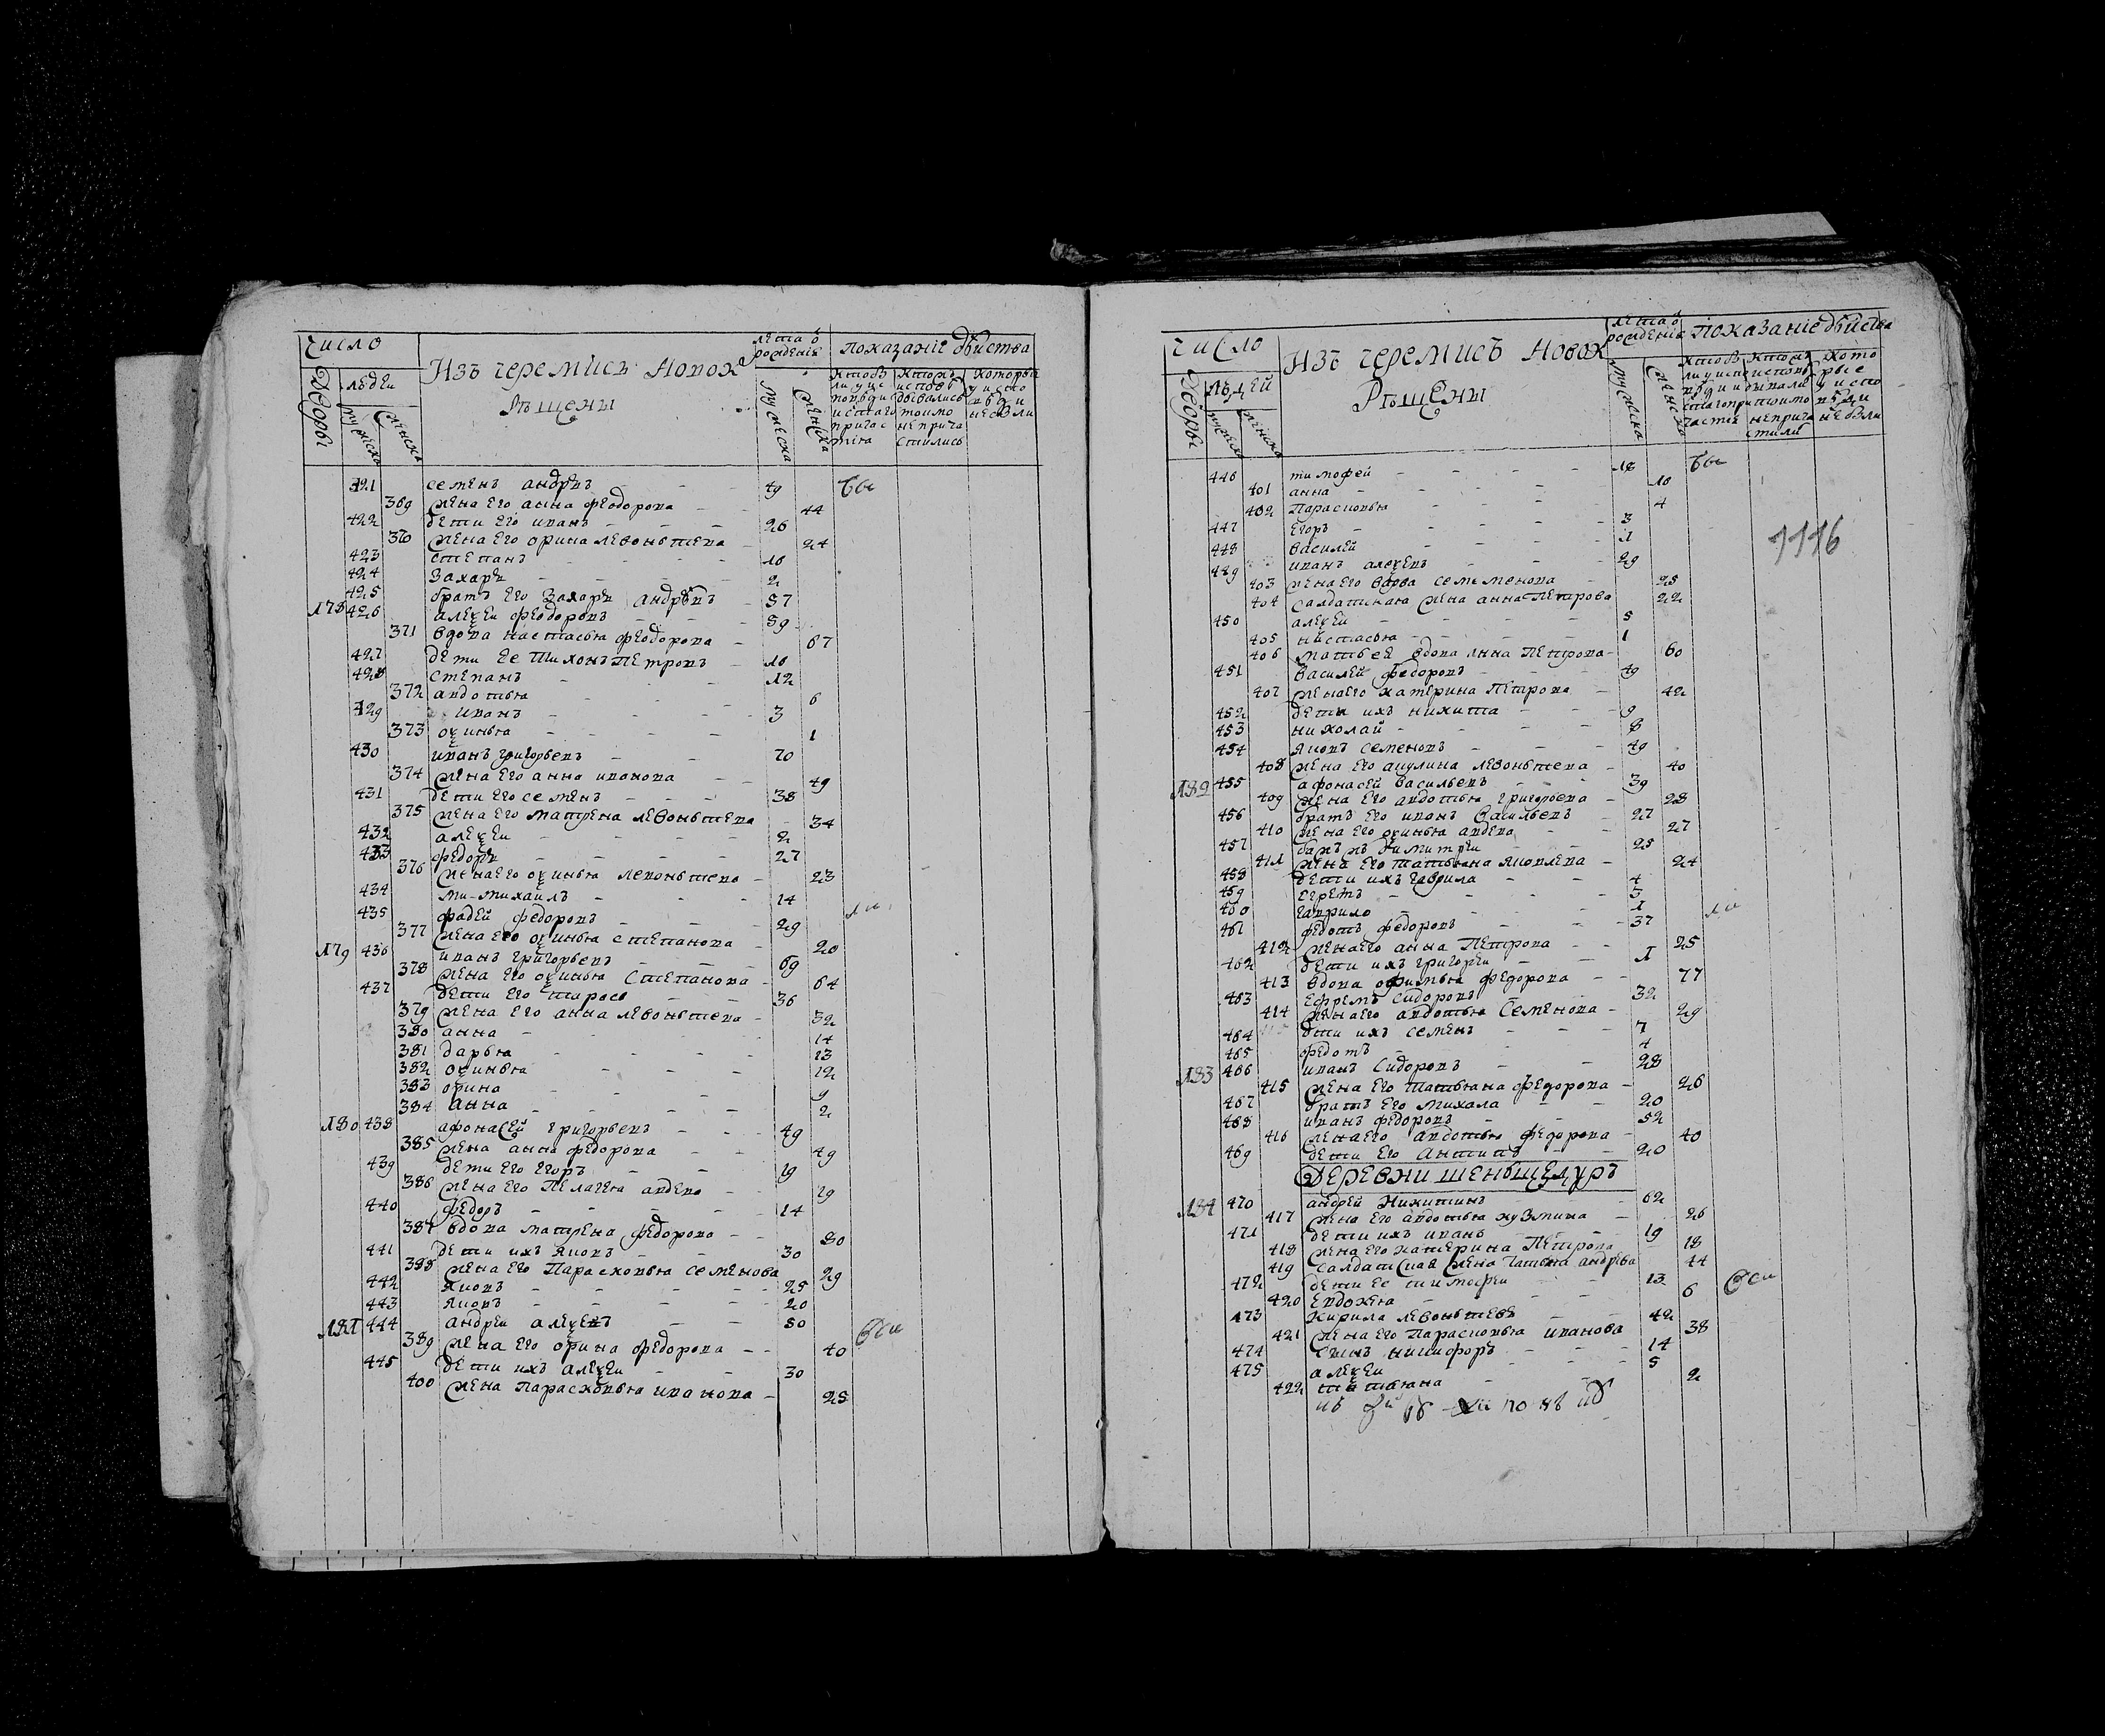 число
Изъ черемисъ новок
рѣщены
лета ѿ рожденiя
показанiе дѣиства
дворы
людеи
мужеска
женска
мужеска
женска
421 семенъ андрѣевъ 49
369 жена его анна феодорова 44
422 дети его иванъ 26
370 жена его орина левоньтева 24
423 степанъ 10
424 захаръ 2
425 братъ его захаръ андрѣевъ 57
178 426 алеѯеи феодоровъ 59
371 вдова настасья феодорова 67
427 дети ее тихонъ петровъ 10
428 степанъ 12
372 авдотья 6
429 иванъ 3
373 оѯинья 1
430 иванъ григорьевъ 70
374 жена его анна иванова 49
431 дети его семенъ 38
375 жена его матрена левоньтева 34
432 алеѯеи 2
433 федоръ 27
376 жена его оѯинья левоньтева 23
434 михаилъ 14
435 фадей федоровъ 29
377 жена его оѯинья степанова 20
179 436 иванъ григорьевъ 69
378 жена его оѯинья степанова 64
437 дети его тарасъ 36
379 жена его анна левоньтева 32
380 анна 14
381 дарья 13
382 оѯинья 12
383 орина 9
384 анна 2
180 438 афонасей григорьевъ 49
385 жена анна федорова 49
439 дети его егоръ 19
386 жена его пелагея авдева 29
440 федоръ 14
387 вдова матрена федорова 80
441 дети ихъ яковъ 30
388 жена его парасковья семенова 29
442 яковъ 25
443 яковъ 20
181 444 андреи алеѯевъ 50
389 жена его орина федорова 40
445 дети ихъ алеѯеи 30
400 жена парасковья иванова 25
число
Изъ черемисъ новок
рѣщены
лета ѿ рожденiя
показанiе дѣиства
дворы
людей
мужеска
женска
мужеска
женска
446 тимофей
401 анна 10
402 парасковья 4
447 егоръ 3
448 василей 1
1116
449 иванъ алеѯевъ 29
403 жена его варва семеменова 25
404 салдацкая жена анна петрова 22
450 алеѯеи 5
405 настасья 1
406 матьве вдова анна петрова 60
451 василей федоровъ 49
407 жена его катерина петрова 42
452 дети ихъ никита 9
453 николай 8
454 яковъ семеновъ 49
408 жена его акулина левоньтева 40
182 455 афонасей васильевъ 39
409 жена его авдотья григорьева 28
456 братъ его иванъ васильевъ 27
410 жена его оѯинья авдева 27
457 димитреи 25
411 жена его татьяна яковлева 24
458 дети ихъ гаврила 4
459 3
460 гаврило 1
461 федотъ федоровъ 37
412 жена его анна петрова 25
462 дети ихъ григореи 1
413 вдова офимья федорова 77
463 ефремъ сидоровъ 32
414 жена его авдотья семенова 29
464 дети ихъ семенъ 7
465 федотъ 4
183 466 иванъ сидоровъ 28
415 жена его татьяна федорова 26
467 братъ его михала 20
468 иванъ федоровъ 52
416 жена его авдотья федорова 40
469 дети его антипъ 20
деревни шеньшецуръ
184 470 андрей никитинъ 62
417 жена его авдотья кузмина 26
471 дети ихъ иванъ 19
418 жена его катерина петрова 18
419 салдацкая жена татьяна андрева 44
472 дети ее тимофеи 13
420 евдокея 6
473 кирила левоньтевъ 42
421 жена его парасковья иванова 38
474 сынъ никифоръ 14
475 алеѯеи 5
422 татьяна 2